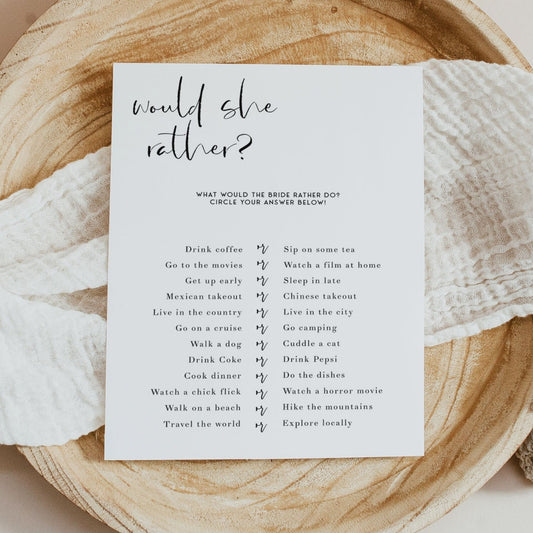 would she
rather?
WHAT WOULD THE BRIDE RATHER DO?
CIRCLE YOUR ANSWER BELOW!
Drink coffee or Sip on some tea
Go to the movies or Watch a film at home
Get up early or Sleep in late
Mexican takeout or Chinese takeout
Live in the country or Live in the city
Go on a cruise or Go camping
Walk a dog or Cuddle a cat
Drink Coke or Drink Pepsi
Cook dinner or Do the dishes
Watch a chick flick or Watch a horror movie
Walk on a beach or Hike the mountains
Travel the world or Explore locally